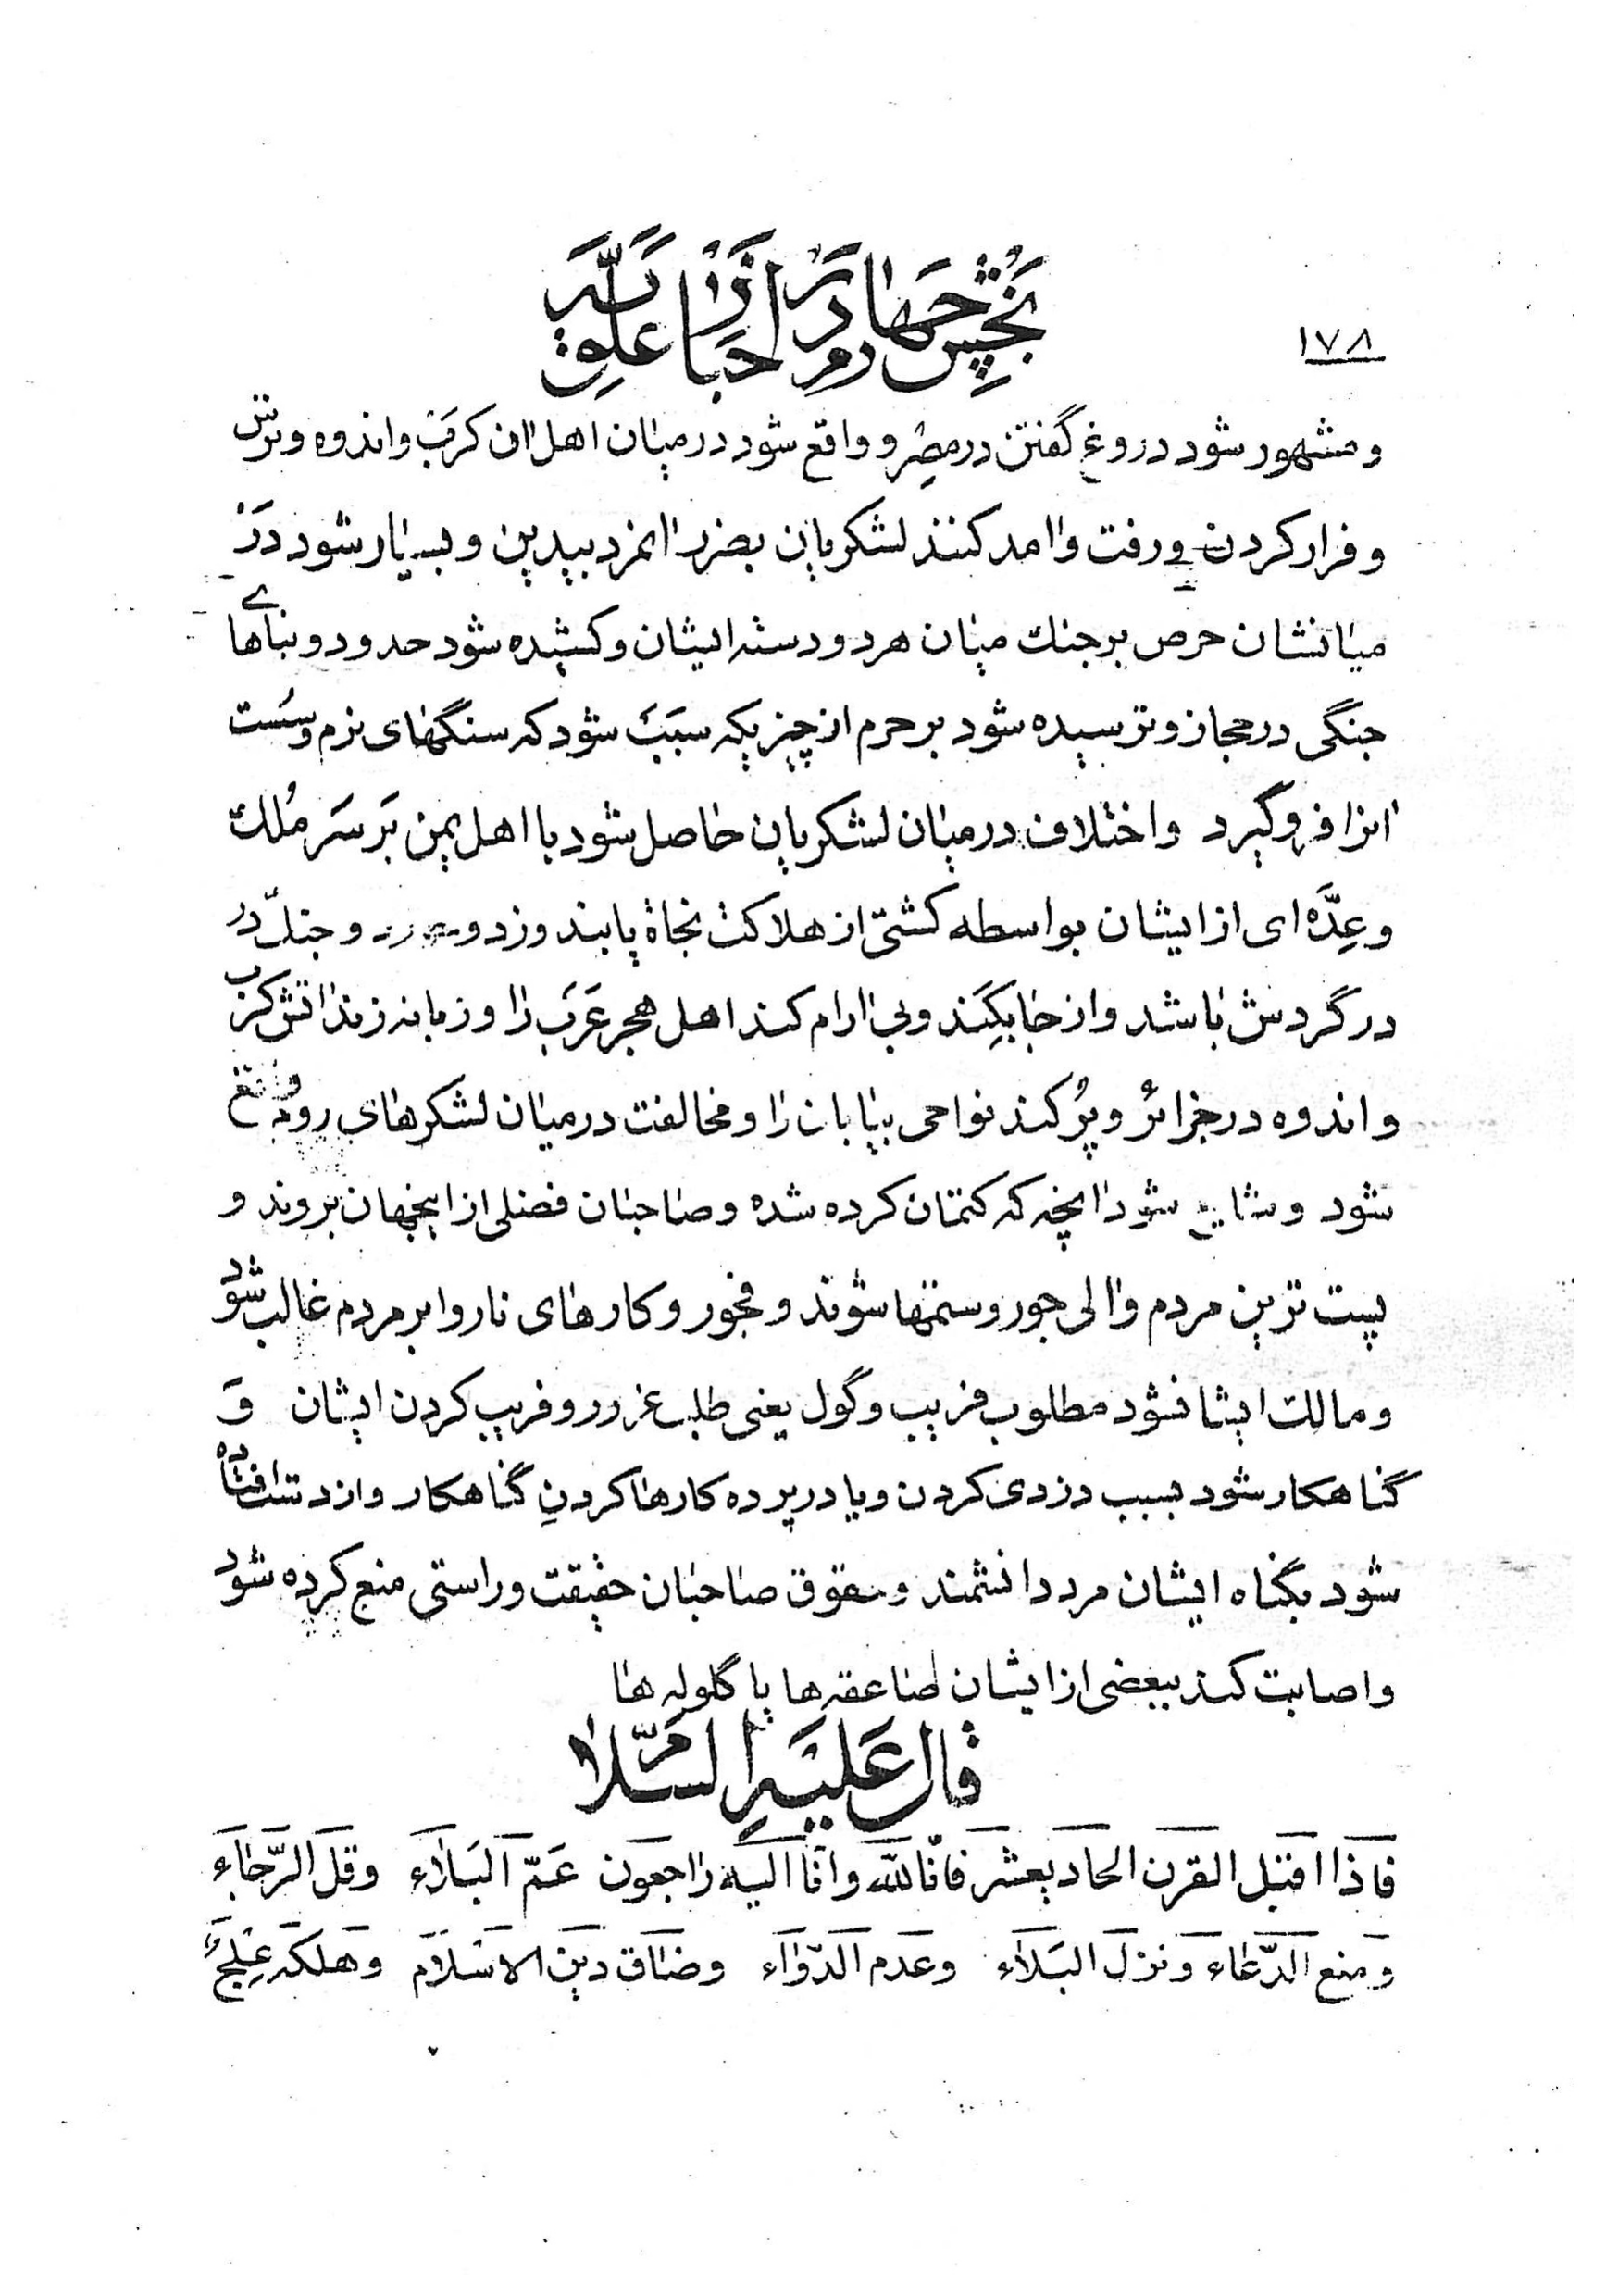 ۱۷۸
بخش چهارم در اخبار علویه
و مشهور شود دروغ گفتن در مصر و واقع شود در میان اهل ان کرب و اندوه و ترس
و فرار کردن و رفت وامد کنند لشکریان بضرر انمرد بیدین و بسیار شود در
میانشان حرص بر جنك میان هر دو دسته ایشان و کشیده شود حدود و بناهای
جنگی در حجاز و ترسیده شود بر حرم از چیزیکه سبب شود که سنگهای نرم و سست
انرا فرو گیرد و اختلاف در میان لشکریان حاصل شود با اهل یمن بر سر ملك
و عِدَّه ای از ایشان بواسطه کشتی از هلاکت نجاة یابند و زد و و جنك در
در گردش باشد و از جا بکِنَد و بی ارام کند اهل هجر عَرَب را و زبانه زند اتش کرب
و اندوه در جزائر و پُر کند نواحی بیابان را و مخالفت در میان لشکرهای روم واقع
شود و شایع شود انچه که کتمان کرده شده و صاحبان فضلی از اینجهان بروند و
پست ترین مردم والی جور و ستمها شوند و فجور و کارهای ناروا بر مردم غالب شود
و مالك ایشانشود مطلوب فریب و گول یعنی طلب غرور و فریب کردن ایشان وَ
گناهکار شود بسبب دزدی کردن و یا در پرده کارها کردنِ گناهکار و از دست افتاده
شود بگناه ایشان مرد دانشمند و حقوق صاحبان حقیقت و راستی منع کرده شود
و اصابت کند ببعضی از ایشان صاعقه ها یا گلوله ها
قال عَلیَهِ السَّلام
فاذا اقبل القرن الحاد یعشر فانّا لله وانّا الیه راجعون عَمّ البَلاء وقَلّ الرَّجاء
ومنع الدّعاء ونزل البَلاء وعَدم الدّواء وضاق دین الاسلام وهلکه عِلج